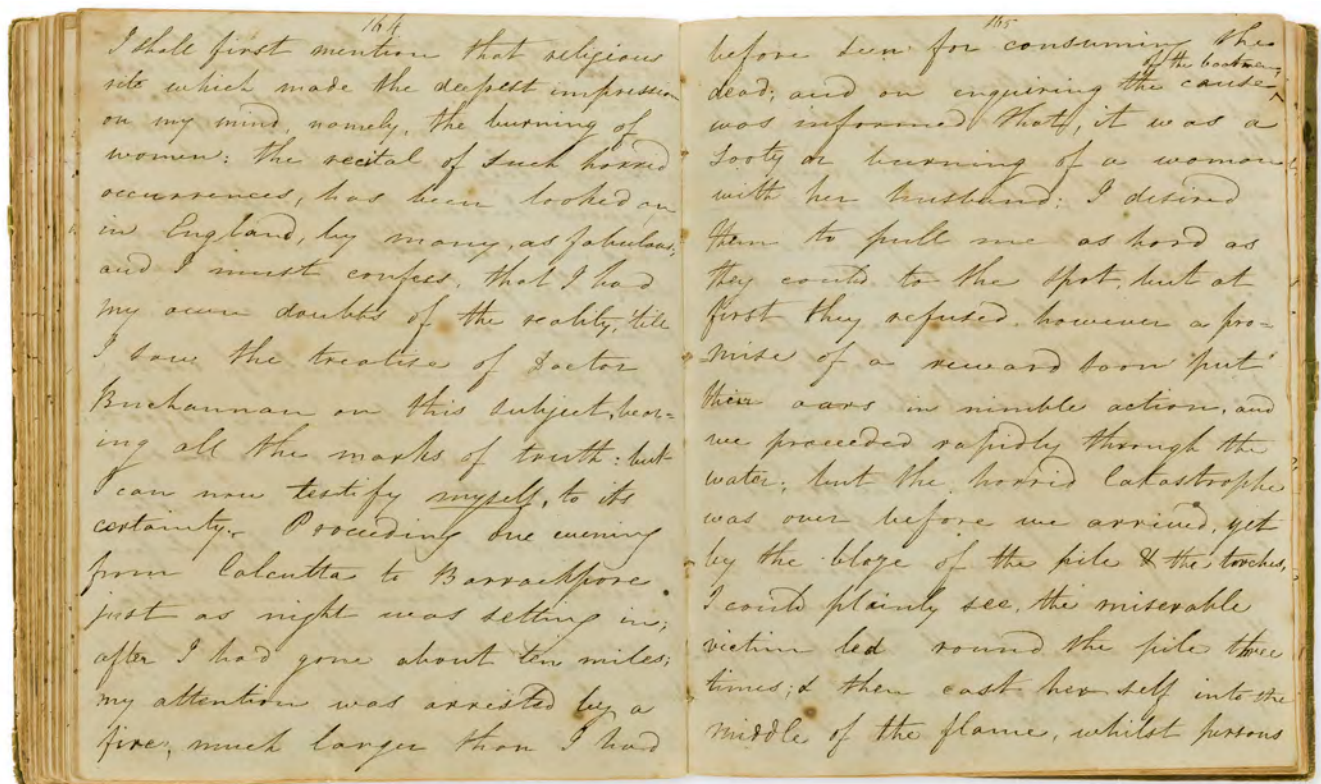 164
I shall first mention that religious
rite which made the deepest impression
on my mind, namely, the burning of
women: the recital of such horrid
occurrences, has been looked on
in England, by many, as fabulous;
and I must confess, that I had
my own doubts of the reality, till
I saw the treatise of Doctor
Buchannan on this subject, bear=
ing all the marks of truth: but
I can now testify myself, to its
certainty. Proceeding one evening
from Calcutta to Barrackpore
just as night was setting in;
after I had gone about ten miles;
my attention was arrested by a
fire, much larger than I had
165
before seen for consuming the
of the boatmen,
dead; and on enquiring the cause ^
was informed that, it was a
Sooty or burning of a woman
with her husband: I desired
them to pull me as hard as
they could to the spot, but at
first they refused, however a pro=
mise of a reward soon put
their oars in nimble action, and
we proceeded rapidly through the
water; but the horrid Catastrophe
was over before we arrived, yet
by the blaze of the pile & the torches,
I could plainly see, the miserable
victim led round the pile three
times; & then cast her self into the
middle of the flame, whilst persons